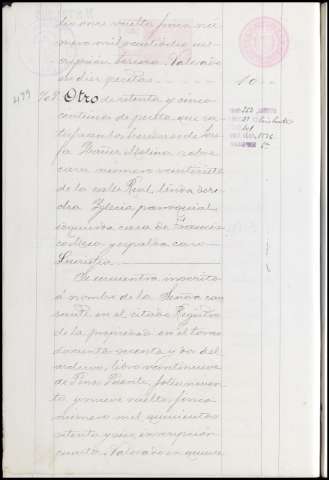 dio once vuelto finca nú
mero mil
cripción tercera. Valorado
en diez pesetas 10
Otro de setenta y cinco
céntimos de peseta que sa-
tisfacen los herederos de Jose
fa Ibañez Molina sobre
casa número veintisiete
de la calle Real, linda dere
cha Iglesia parroquial
izquierda casa de Francis
co y espalda
Se encuentra inscrito
á nombre de la Señora cau
sante en el citado Registro
de la propiedad en el tomo
doscientos sesenta y dos del
archivo, libro veintinueve
de Pinos Puente, folio noven
ta y nueve vuelto, finca
número mil quinientos
setenta y seis, inscripción
cuarta. Valorado en quince